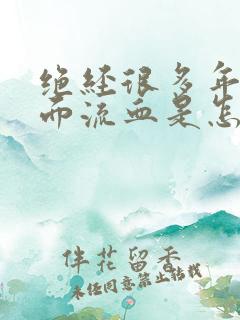 绝经很多年
而流血是怎
伴花留香
未经同意禁止转载